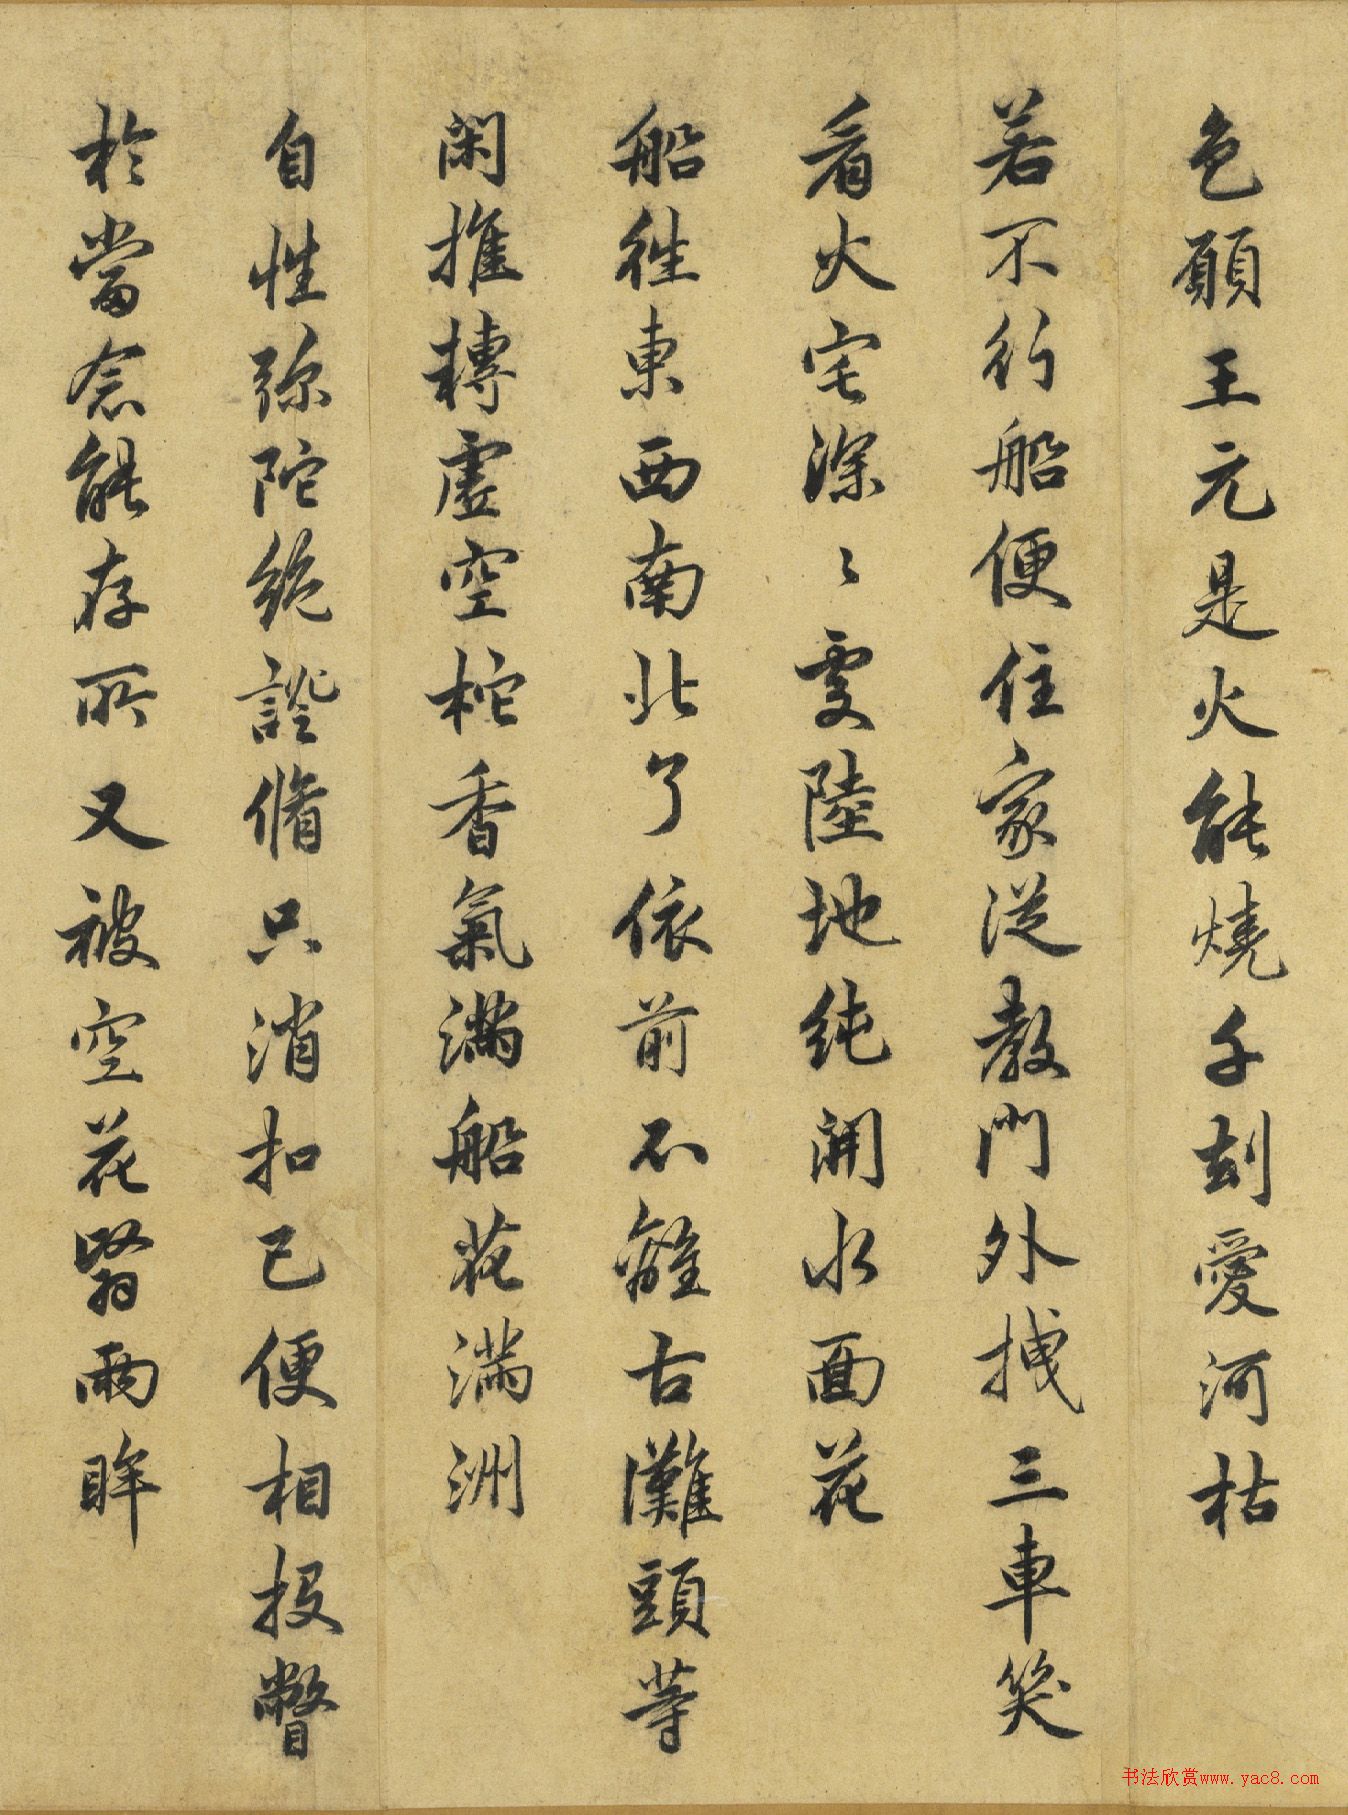 色願王元是火能燒千刦愛河枯
若不行船便住家從教門外拽三車笑
看火宅深〻處陸地純開水面花
船往東西南北了依前不離古灘頭等
閑推轉虛空柁香氣滿船花滿洲
自性弥陀絶證脩只消扣己便相投瞥
於當念能存所又被空花翳兩眸
书法欣赏www.yac8.com